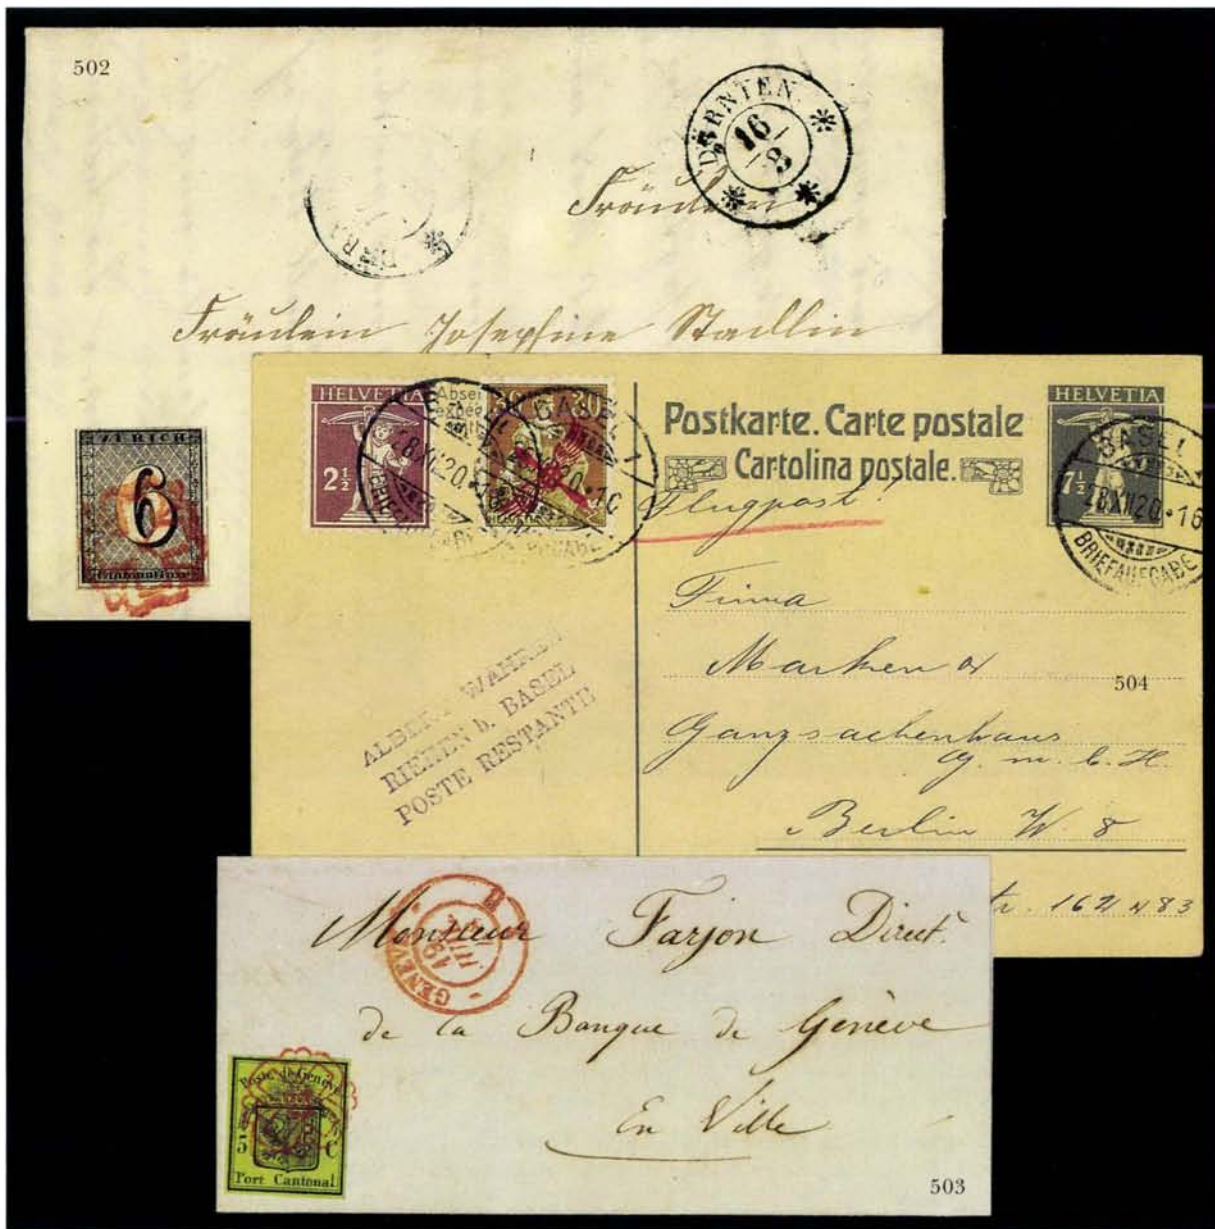 502
DÜRNTEN.
16/8
Fräulein
Fräulein Josephine Stadlin
ZÜRICH
6
HELVETIA
2½
30 30
BASEL 1
28.XII.20.•16
BRIEFAUFGABE
Postkarte. Carte postale
Cartolina postale.
HELVETIA
7½
BASEL
28.XII.20.•16
BRIEFAUFGABE
Flugpost!
Firma
Marken &
504
Ganzsachenhaus
G. m. b. H.
Berlin W. 8
tr. 162 483
ALBERT WAHRE
RIEHEN b. BASEL
POSTE RESTANTE
GENEVE
Monsieur Farjon Direct.
de la Banque de Genève
En Ville
Poste de Genève
5 C
Port Cantonal
503